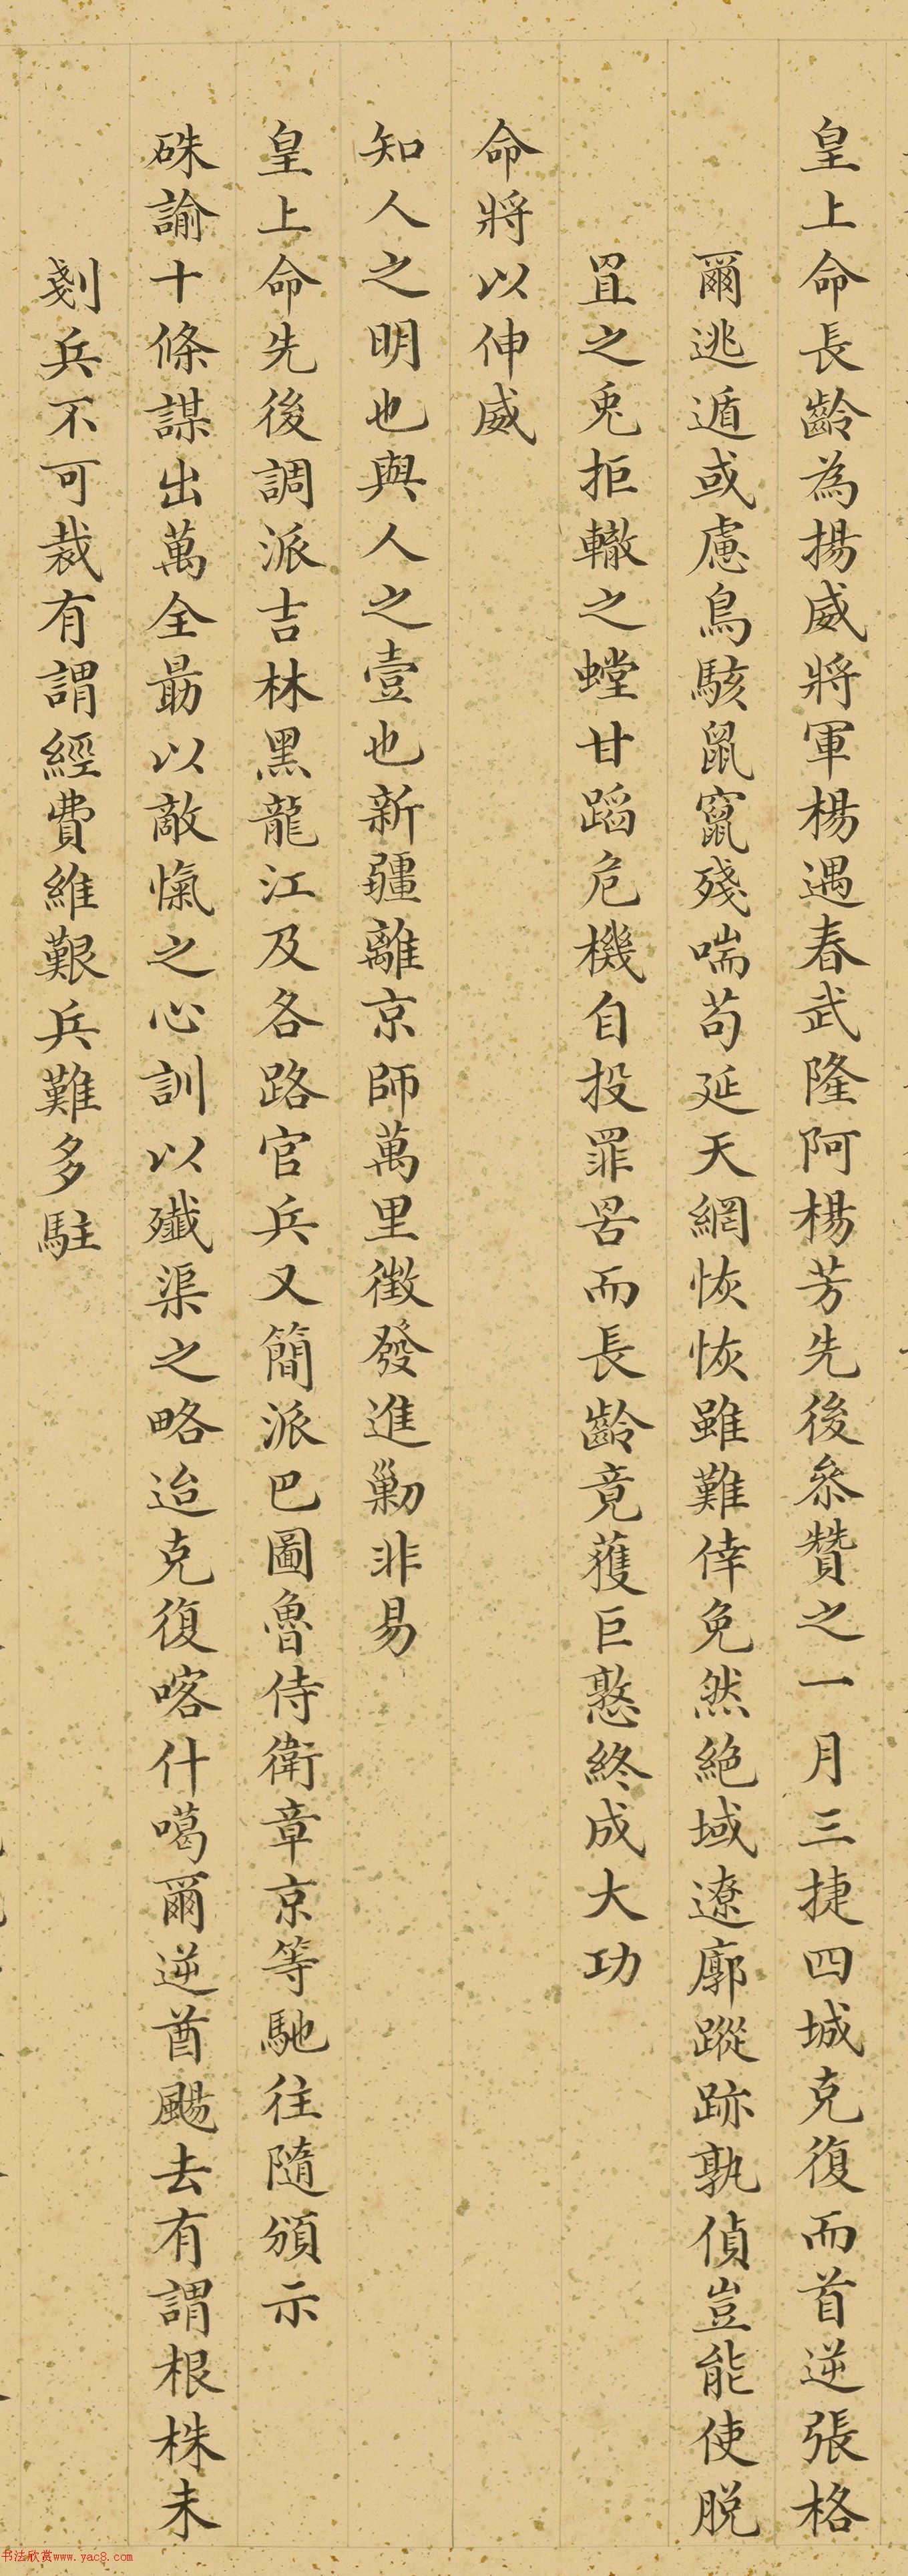 皇上命長齡為揚威將軍楊遇春武隆阿楊芳先後叅贊之一月三捷四城克復而首逆張格
爾逃遁或慮鳥駭鼠竄殘喘苟延天網恢恢雖難倖免然絕域遼廓蹤跡孰偵豈能使脱
罝之兎拒轍之螳甘蹈危機自投罪罟而長齡竟獲巨憝終成大功
命將以伸威
知人之明也與人之壹也新疆離京師萬里徴發進勦非易
皇上命先後調派吉林黑龍江及各路官兵又簡派巴圖魯侍衛章京等馳往隨頒示
硃諭十條謀出萬全勗以敵愾之心訓以殲渠之略迨克復喀什噶爾逆酋颺去有謂根株未
剗兵不可裁有謂經費維艱兵難多駐
书法欣赏www.yac8.com